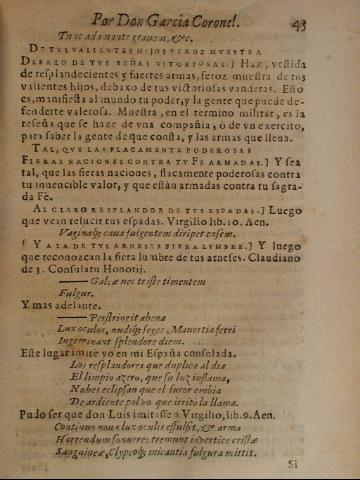 Por Don Garcia Coronel. 43
DE TVS VALIENTES HIJOS FEROZ MVESTRA
DEBAXO DE TVS SEÑAS VITORIOSAS.] Haz, vestida
de resplandecientes y fuertes armas, feroz muestra de tus
valientes hijos, debaxo de tus victoriosas vanderas. Esto
es, manifiesta al mundo tu poder, y la gente que puede de-
fenderte valerosa. Muestra, en el termino militar, es la
reseña que se haze de vna compañia, ò de vn exercito,
para saber la gente de que consta, y las armas que lleua.
TAL, QVE LAS FLACAMENTE PODEROSAS
FIERAS NACIONES CONTRA TV FE ARMADAS.] Y sea
tal, que las fieras naciones, flacamente poderosas contra
tu inuencible valor, y que estàn armadas contra tu sagra-
da Fè.
AL CLARO RESPLANDOR DE TVS ESPADAS.] Luego
que vean relucir tus espadas. Virgilio lib. 10. Aen.
Vaginaq; caua fulgentem diripet ensem.
[Y A LA DE TVS ARNESES FIERA LVMBRE.] Y luego
que reconozcan la fiera lumbre de tus arneses. Claudiano
de 3. Consulatu Honorij.
Galeæ nec triste timentem
Fulgur.
Y mas adelante.
Perstringit ahena
Lux oculos, nudiq; seges Mauortia ferri
Ingeminant splendore diem.
Este lugar imitè yo en mi España consolada.
Los resplandores que duplica al dia
El limpio azero, que su luz inflama,
Nubes eclipsan que el furor embia
De ardiente poluo que irritò la llama.
Pudo ser que don Luis imitasse a Virgilio, lib. 9. Aen.
Continuo noua lux oculis effulsit, & arma
Horrendum sonuere: tremunt in vertice cristæ
Sanguineæ, Clypeoq; micantia fulgura mittit.
Si